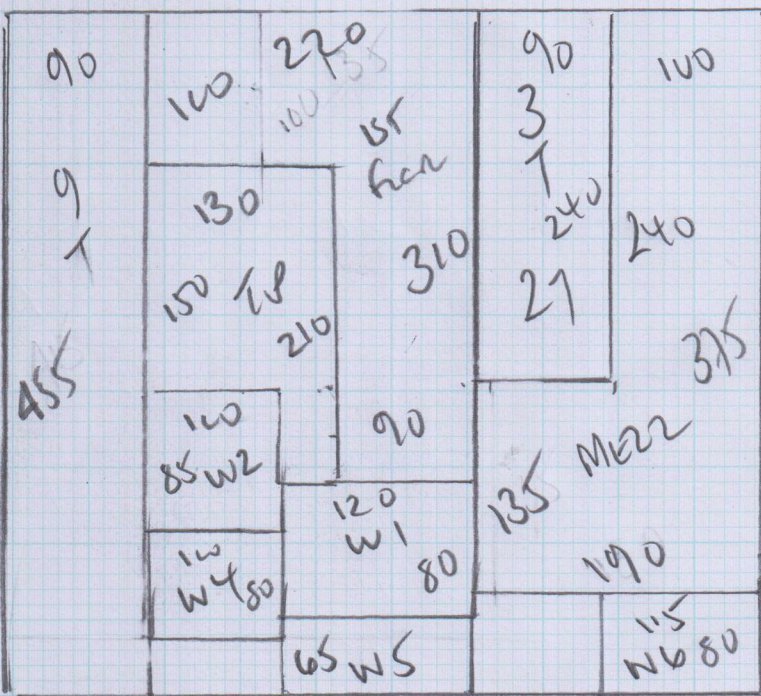 90
9
T
455
100
220
100 135
155
130
150 TP
210
310
90
100
85 W2
100
W4 80
120
W1
80
65 W5
90
3
T
240
21
100
240
375
MEZZ
135
190
115
W6 80